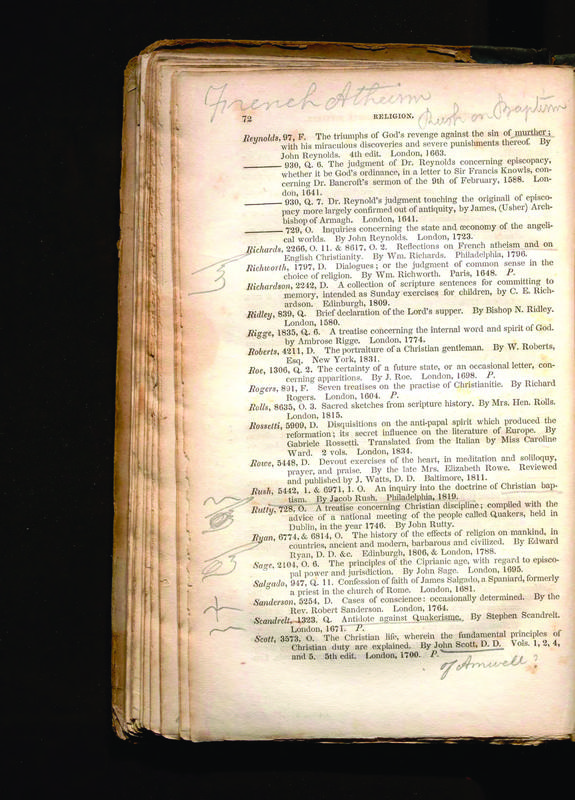 French Atheism
Rush on Baptism
72 RELIGION.
Reynolds, 97, F. The triumphs of God's revenge against the sin of murther;
with his miraculous discoveries and severe punishments thereof. By
John Reynolds. 4th edit. London, 1663.
——— 930, Q. 6. The judgment of Dr. Reynolds concerning episcopacy,
whether it be God's ordinance, in a letter to Sir Francis Knowls, con-
cerning Dr. Bancroft's sermon of the 9th of February, 1588. Lon-
don, 1641.
——— 930, Q. 7. Dr. Reynold's judgment touching the originall of episco-
pacy more largely confirmed out of antiquity, by James, (Usher) Arch-
bishop of Armagh. London, 1641.
——— 729, O. Inquiries concerning the state and œconomy of the angeli-
cal worlds. By John Reynolds. London, 1723.
Richards, 2266, O. 11. & 8617, O. 2. Reflections on French atheism and on
English Christianity. By Wm. Richards. Philadelphia, 1796.
Richworth, 1797, D. Dialogues; or the judgment of common sense in the
choice of religion. By Wm. Richworth. Paris, 1648. P.
Richardson, 2242, D. A collection of scripture sentences for committing to
memory, intended as Sunday exercises for children, by C. E. Rich-
ardson. Edinburgh, 1809.
Ridley, 839, Q. Brief declaration of the Lord's supper. By Bishop N. Ridley.
London, 1580.
Rigge, 1835, Q. 6. A treatise concerning the internal word and spirit of God.
by Ambrose Rigge. London. 1774.
Roberts, 4211, D. The portraiture of a Christian gentleman. By W. Roberts,
Esq. New York, 1831.
Roe, 1306, Q. 2. The certainty of a future state, or an occasional letter, con-
cerning apparitions. By J. Roe. London, 1698. P.
Rogers, 891, F. Seven treatises on the practise of Christianitie. By Richard
Rogers. London, 1604. P.
Rolls, 8635, O. 3. Sacred sketches from scripture history. By Mrs. Hen. Rolls.
London, 1815.
Rossetti, 5909, D. Disquisitions on the anti-papal spirit which produced the
reformation; its secret influence on the literature of Europe. By
Gabriele Rossetti. Translated from the Italian by Miss Caroline
Ward. 2 vols. London, 1834.
Rowe, 5448, D. Devout exercises of the heart, in meditation and soliloquy,
prayer, and praise. By the late Mrs. Elizabeth Rowe. Reviewed
and published by J. Watts, D. D. Baltimore, 1811.
Rush, 5442, 1. & 6971, 1. O. An inquiry into the doctrine of Christian bap-
tism. By Jacob Rush. Philadelphia, 1819.
Rutty, 728, O. A treatise concerning Christian discipline; compiled with the
advice of a national meeting of the people called Quakers, held in
Dublin, in the year 1746. By John Rutty.
Ryan, 6774, & 6814, O. The history of the effects of religion on mankind, in
countries, ancient and modern, barbarous and civilized. By Edward
Ryan, D. D. &c. Edinburgh, 1806, & London, 1788.
Sage, 2104, O. 6. The principles of the Ciprianic age, with regard to episco-
pal power and jurisdiction. By John Sage. London, 1695.
Salgado, 947, Q. 11. Confession of faith of James Salgado, a Spaniard, formerly
a priest in the church of Rome. London, 1681.
Sanderson, 5254, D. Cases of conscience: occasionally determined. By the
Rev. Robert Sanderson. London, 1764.
Scandrelt, 1323. Q. Antidote against Quakerisme. By Stephen Scandrelt.
London, 1671. P.
Scott, 3573, O. The Christian life, wherein the fundamental principles of
Christian duty are explained. By John Scott, D. D. Vols. 1, 2, 4,
and 5. 5th edit. London, 1700. P.
of Amwell?